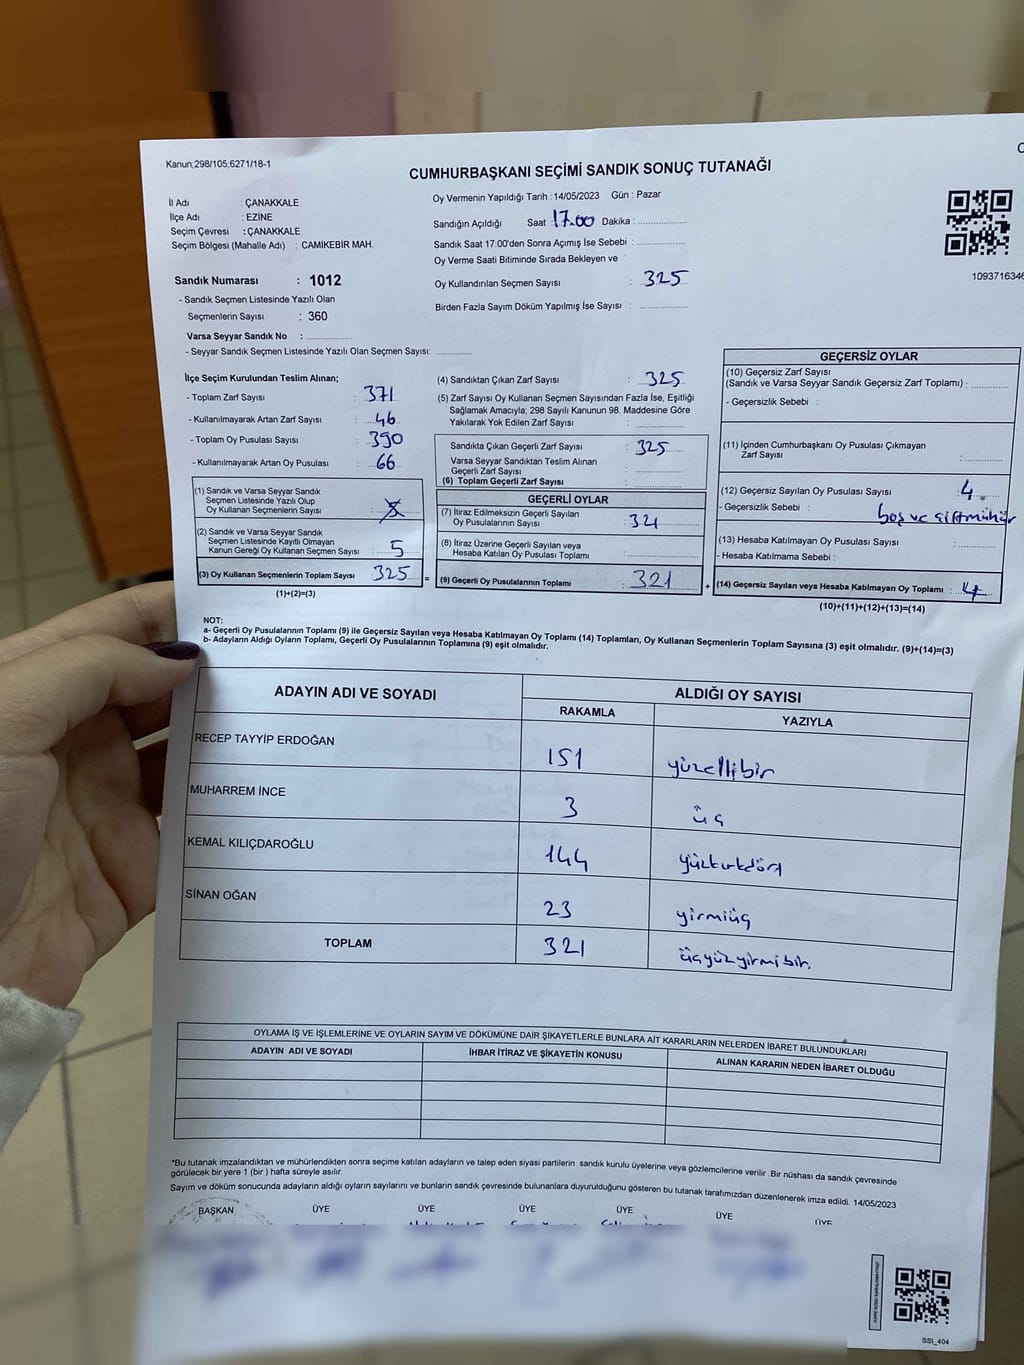 Kanun;298/105;6271/18-1
CUMHURBAŞKANI SEÇİMİ SANDIK SONUÇ TUTANAĞI
İl Adı : ÇANAKKALE
İlçe Adı : EZİNE
Seçim Çevresi : ÇANAKKALE
Seçim Bölgesi (Mahalle Adı) : CAMİKEBİR MAH.
Oy Vermenin Yapıldığı Tarih : 14/05/2023 Gün : Pazar
Sandığın Açıldığı Saat 17.00 Dakika :
Sandık Saat 17:00'den Sonra Açımış İse Sebebi :
Oy Verme Saati Bitiminde Sırada Bekleyen ve
Oy Kullandırılan Seçmen Sayısı : 325
Birden Fazla Sayım Döküm Yapılmış İse Sayısı :
1093716346
Sandık Numarası : 1012
- Sandık Seçmen Listesinde Yazılı Olan
Seçmenlerin Sayısı : 360
Varsa Seyyar Sandık No :
- Seyyar Sandık Seçmen Listesinde Yazılı Olan Seçmen Sayısı:
İlçe Seçim Kurulundan Teslim Alınan;
- Toplam Zarf Sayısı : 371
- Kullanılmayarak Artan Zarf Sayısı : 46
- Toplam Oy Pusulası Sayısı : 390
- Kullanılmayarak Artan Oy Pusulası : 66
(1) Sandık ve Varsa Seyyar Sandık
Seçmen Listesinde Yazılı Olup
Oy Kullanan Seçmenlerin Sayısı :
(2) Sandık ve Varsa Seyyar Sandık
Seçmen Listesinde Kayıtlı Olmayan
Kanun Gereği Oy Kullanan Seçmen Sayısı : 5
(3) Oy Kullanan Seçmenlerin Toplam Sayısı 325 =
(1)+(2)=(3)
(4) Sandıktan Çıkan Zarf Sayısı : 325
(5) Zarf Sayısı Oy Kullanan Seçmen Sayısından Fazla İse, Eşitliği
Sağlamak Amacıyla; 298 Sayılı Kanunun 98. Maddesine Göre
Yakılarak Yok Edilen Zarf Sayısı :
Sandıkta Çıkan Geçerli Zarf Sayısı : 325
Varsa Seyyar Sandıktan Teslim Alınan
Geçerli Zarf Sayısı :
(6) Toplam Geçerli Zarf Sayısı :
GEÇERLİ OYLAR
(7) İtiraz Edilmeksizin Geçerli Sayılan
Oy Pusulalarının Sayısı : 321
(8) İtiraz Üzerine Geçerli Sayılan veya
Hesaba Katılan Oy Pusulası Toplamı :
(9) Geçerli Oy Pusulalarının Toplamı : 321 +
GEÇERSİZ OYLAR
(10) Geçersiz Zarf Sayısı
(Sandık ve Varsa Seyyar Sandık Geçersiz Zarf Toplamı) :
- Geçersizlik Sebebi :
(11) İçinden Cumhurbaşkanı Oy Pusulası Çıkmayan
Zarf Sayısı :
(12) Geçersiz Sayılan Oy Pusulası Sayısı : 4
- Geçersizlik Sebebi : boş ve çiftmühür
(13) Hesaba Katılmayan Oy Pusulası Sayısı :
- Hesaba Katılmama Sebebi :
(14) Geçersiz Sayılan veya Hesaba Katılmayan Oy Toplamı : 4
(10)+(11)+(12)+(13)=(14)
NOT:
a- Geçerli Oy Pusulalarının Toplamı (9) ile Geçersiz Sayılan veya Hesaba Katılmayan Oy Toplamı (14) Toplamları, Oy Kullanan Seçmenlerin Toplam Sayısına (3) eşit olmalıdır. (9)+(14)=(3)
b- Adayların Aldığı Oyların Toplamı, Geçerli Oy Pusulalarının Toplamına (9) eşit olmalıdır.
ADAYIN ADI VE SOYADI
ALDIĞI OY SAYISI
RAKAMLA YAZIYLA
RECEP TAYYİP ERDOĞAN 151 yüzellibir
MUHARREM İNCE 3 üç
KEMAL KILIÇDAROĞLU 144 yüzkırkdört
SİNAN OĞAN 23 yirmiüç
TOPLAM 321 üçyüzyirmibir.
OYLAMA İŞ VE İŞLEMLERİNE VE OYLARIN SAYIM VE DÖKÜMÜNE DAİR ŞİKAYETLERLE BUNLARA AİT KARARLARIN NELERDEN İBARET BULUNDUKLARI
ADAYIN ADI VE SOYADI İHBAR İTİRAZ VE ŞİKAYETİN KONUSU ALINAN KARARIN NEDEN İBARET OLDUĞU
*Bu tutanak imzalandıktan ve mühürlendikten sonra seçime katılan adayların ve talep eden siyasi partilerin sandık kurulu üyelerine veya gözlemcilerine verilir. Bir nüshası da sandık çevresinde
görülecek bir yere 1 (bir ) hafta süreyle asılır.
Sayım ve döküm sonucunda adayların aldığı oyların sayılarını ve bunların sandık çevresinde bulunanlara duyurulduğunu gösteren bu tutanak tarafımızdan düzenlenerek imza edildi. 14/05/2023
BAŞKAN ÜYE ÜYE ÜYE ÜYE ÜYE ÜYE
SSI_404